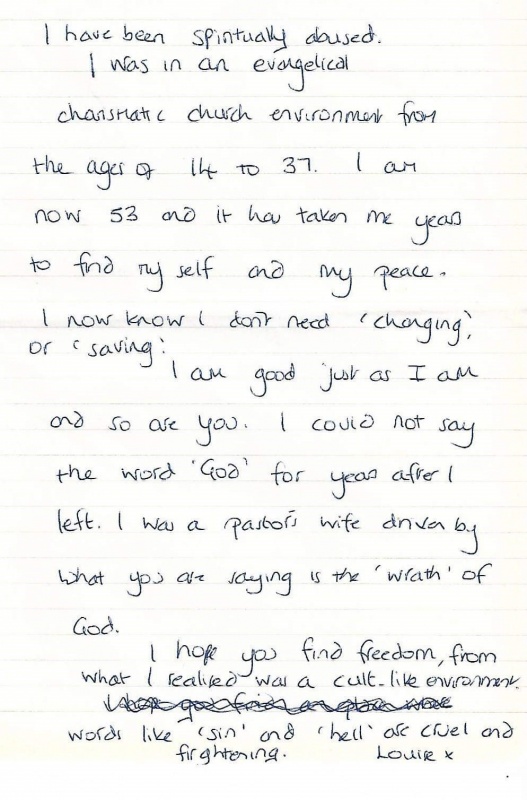 I have been spiritually abused.
I was in an evangelical
charismatic church environment from
the ages of 14 to 37. I am
now 53 and it has taken me years
to find my self and my peace.
I now know I don't need 'changing',
or 'saving'.
I am good just as I am
and so are you. I could not say
the word 'God' for years after I
left. I was a pastor's wife driven by
what you are saying is the 'wrath' of
God.
I hope you find freedom, from
what I realised was a cult-like environment.
words like 'sin' and 'hell' are cruel and
frightening. Louise x